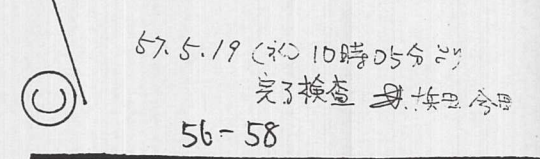 57.5.19 (水) 10時05分より
完了検査
56-58